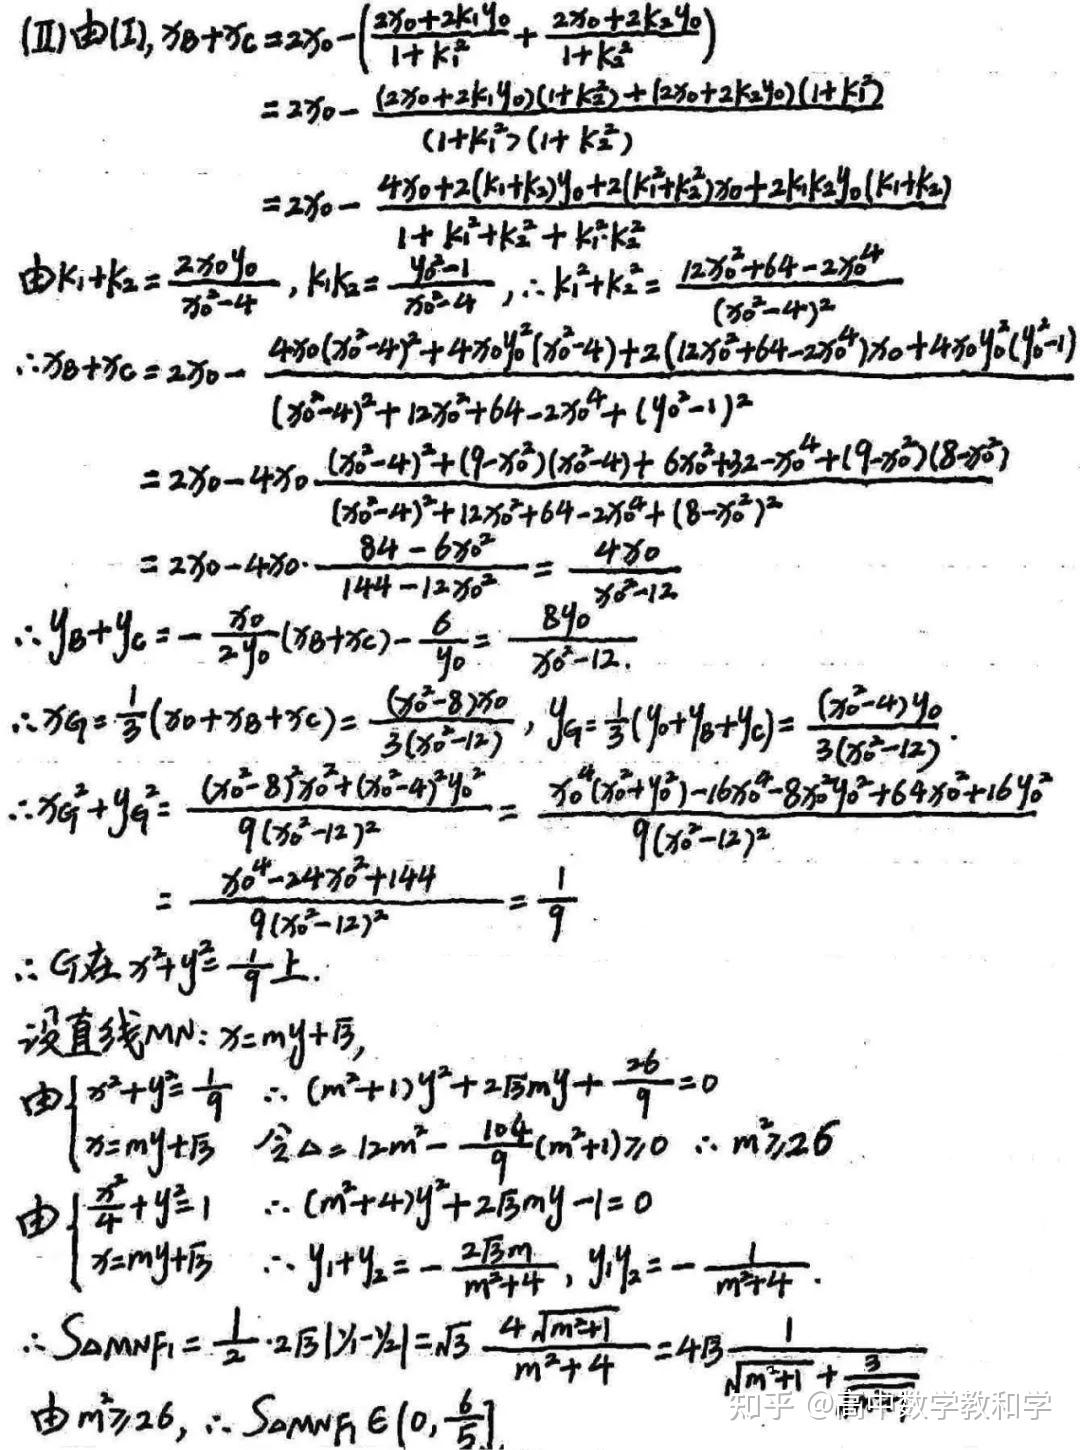 (II)由(I), x_B+x_C=2x_0-((2x_0+2k_1y_0)/(1+k_1^2)+(2x_0+2k_2y_0)/(1+k_2^2))
=2x_0-((2x_0+2k_1y_0)(1+k_2^2)+(2x_0+2k_2y_0)(1+k_1^2))/((1+k_1^2)(1+k_2^2))
=2x_0-(4x_0+2(k_1+k_2)y_0+2(k_1^2+k_2^2)x_0+2k_1k_2y_0(k_1+k_2))/(1+k_1^2+k_2^2+k_1^2·k_2^2)
由k_1+k_2=2x_0y_0/(x_0^2-4), k_1k_2=(y_0^2-1)/(x_0^2-4), ∴k_1^2+k_2^2=(12x_0^2+64-2x_0^4)/(x_0^2-4)^2
∴x_B+x_C=2x_0-(4x_0(x_0^2-4)^2+4x_0y_0^2(x_0^2-4)+2(12x_0^2+64-2x_0^4)x_0+4x_0y_0^2(y_0^2-1))/((x_0^2-4)^2+12x_0^2+64-2x_0^4+(y_0^2-1)^2)
=2x_0-4x_0((x_0^2-4)^2+(9-x_0^2)(x_0^2-4)+6x_0^2+32-x_0^4+(9-x_0^2)(8-x_0^2))/((x_0^2-4)^2+12x_0^2+64-2x_0^4+(8-x_0^2)^2)
=2x_0-4x_0·(84-6x_0^2)/(144-12x_0^2)=4x_0/(x_0^2-12)
∴y_B+y_C=-x_0/(2y_0)(x_B+x_C)-6/y_0=8y_0/(x_0^2-12).
∴x_G=1/3(x_0+x_B+x_C)=(x_0^2-8)x_0/(3(x_0^2-12)), y_G=1/3(y_0+y_B+y_C)=(x_0^2-4)y_0/(3(x_0^2-12)).
∴x_G^2+y_G^2=((x_0^2-8)^2x_0^2+(x_0^2-4)^2y_0^2)/(9(x_0^2-12)^2)=(x_0^4(x_0^2+y_0^2)-16x_0^4-8x_0^2y_0^2+64x_0^2+16y_0^2)/(9(x_0^2-12)^2)
=(x_0^4-24x_0^2+144)/(9(x_0^2-12)^2)=1/9
∴G在x^2+y^2=1/9上.
设直线MN: x=my+√3,
由{x^2+y^2=1/9 ∴(m^2+1)y^2+2√3my+26/9=0
x=my+√3 令Δ=12m^2-104/9(m^2+1)≥0 ∴m^2≥26
由{x^2/4+y^2=1 ∴(m^2+4)y^2+2√3my-1=0
x=my+√3 ∴y_1+y_2=-2√3m/(m^2+4), y_1y_2=-1/(m^2+4).
∴S△MNF_1=1/2·2√3|y_1-y_2|=√3 4√(m^2+1)/(m^2+4)=4√3 1/(√(m^2+1)+3/
由m^2≥26, ∴S△MNF_1∈(0,6/5]
知乎 @高中数学教和学